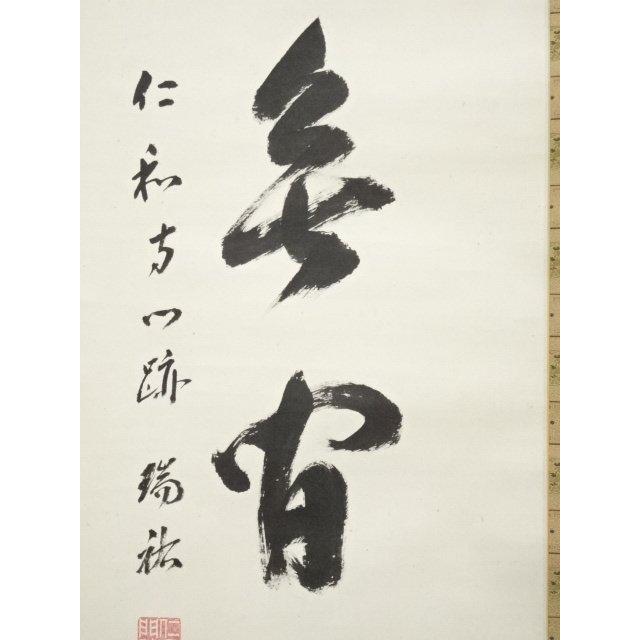 無閒
仁和寺門跡 瑞祐